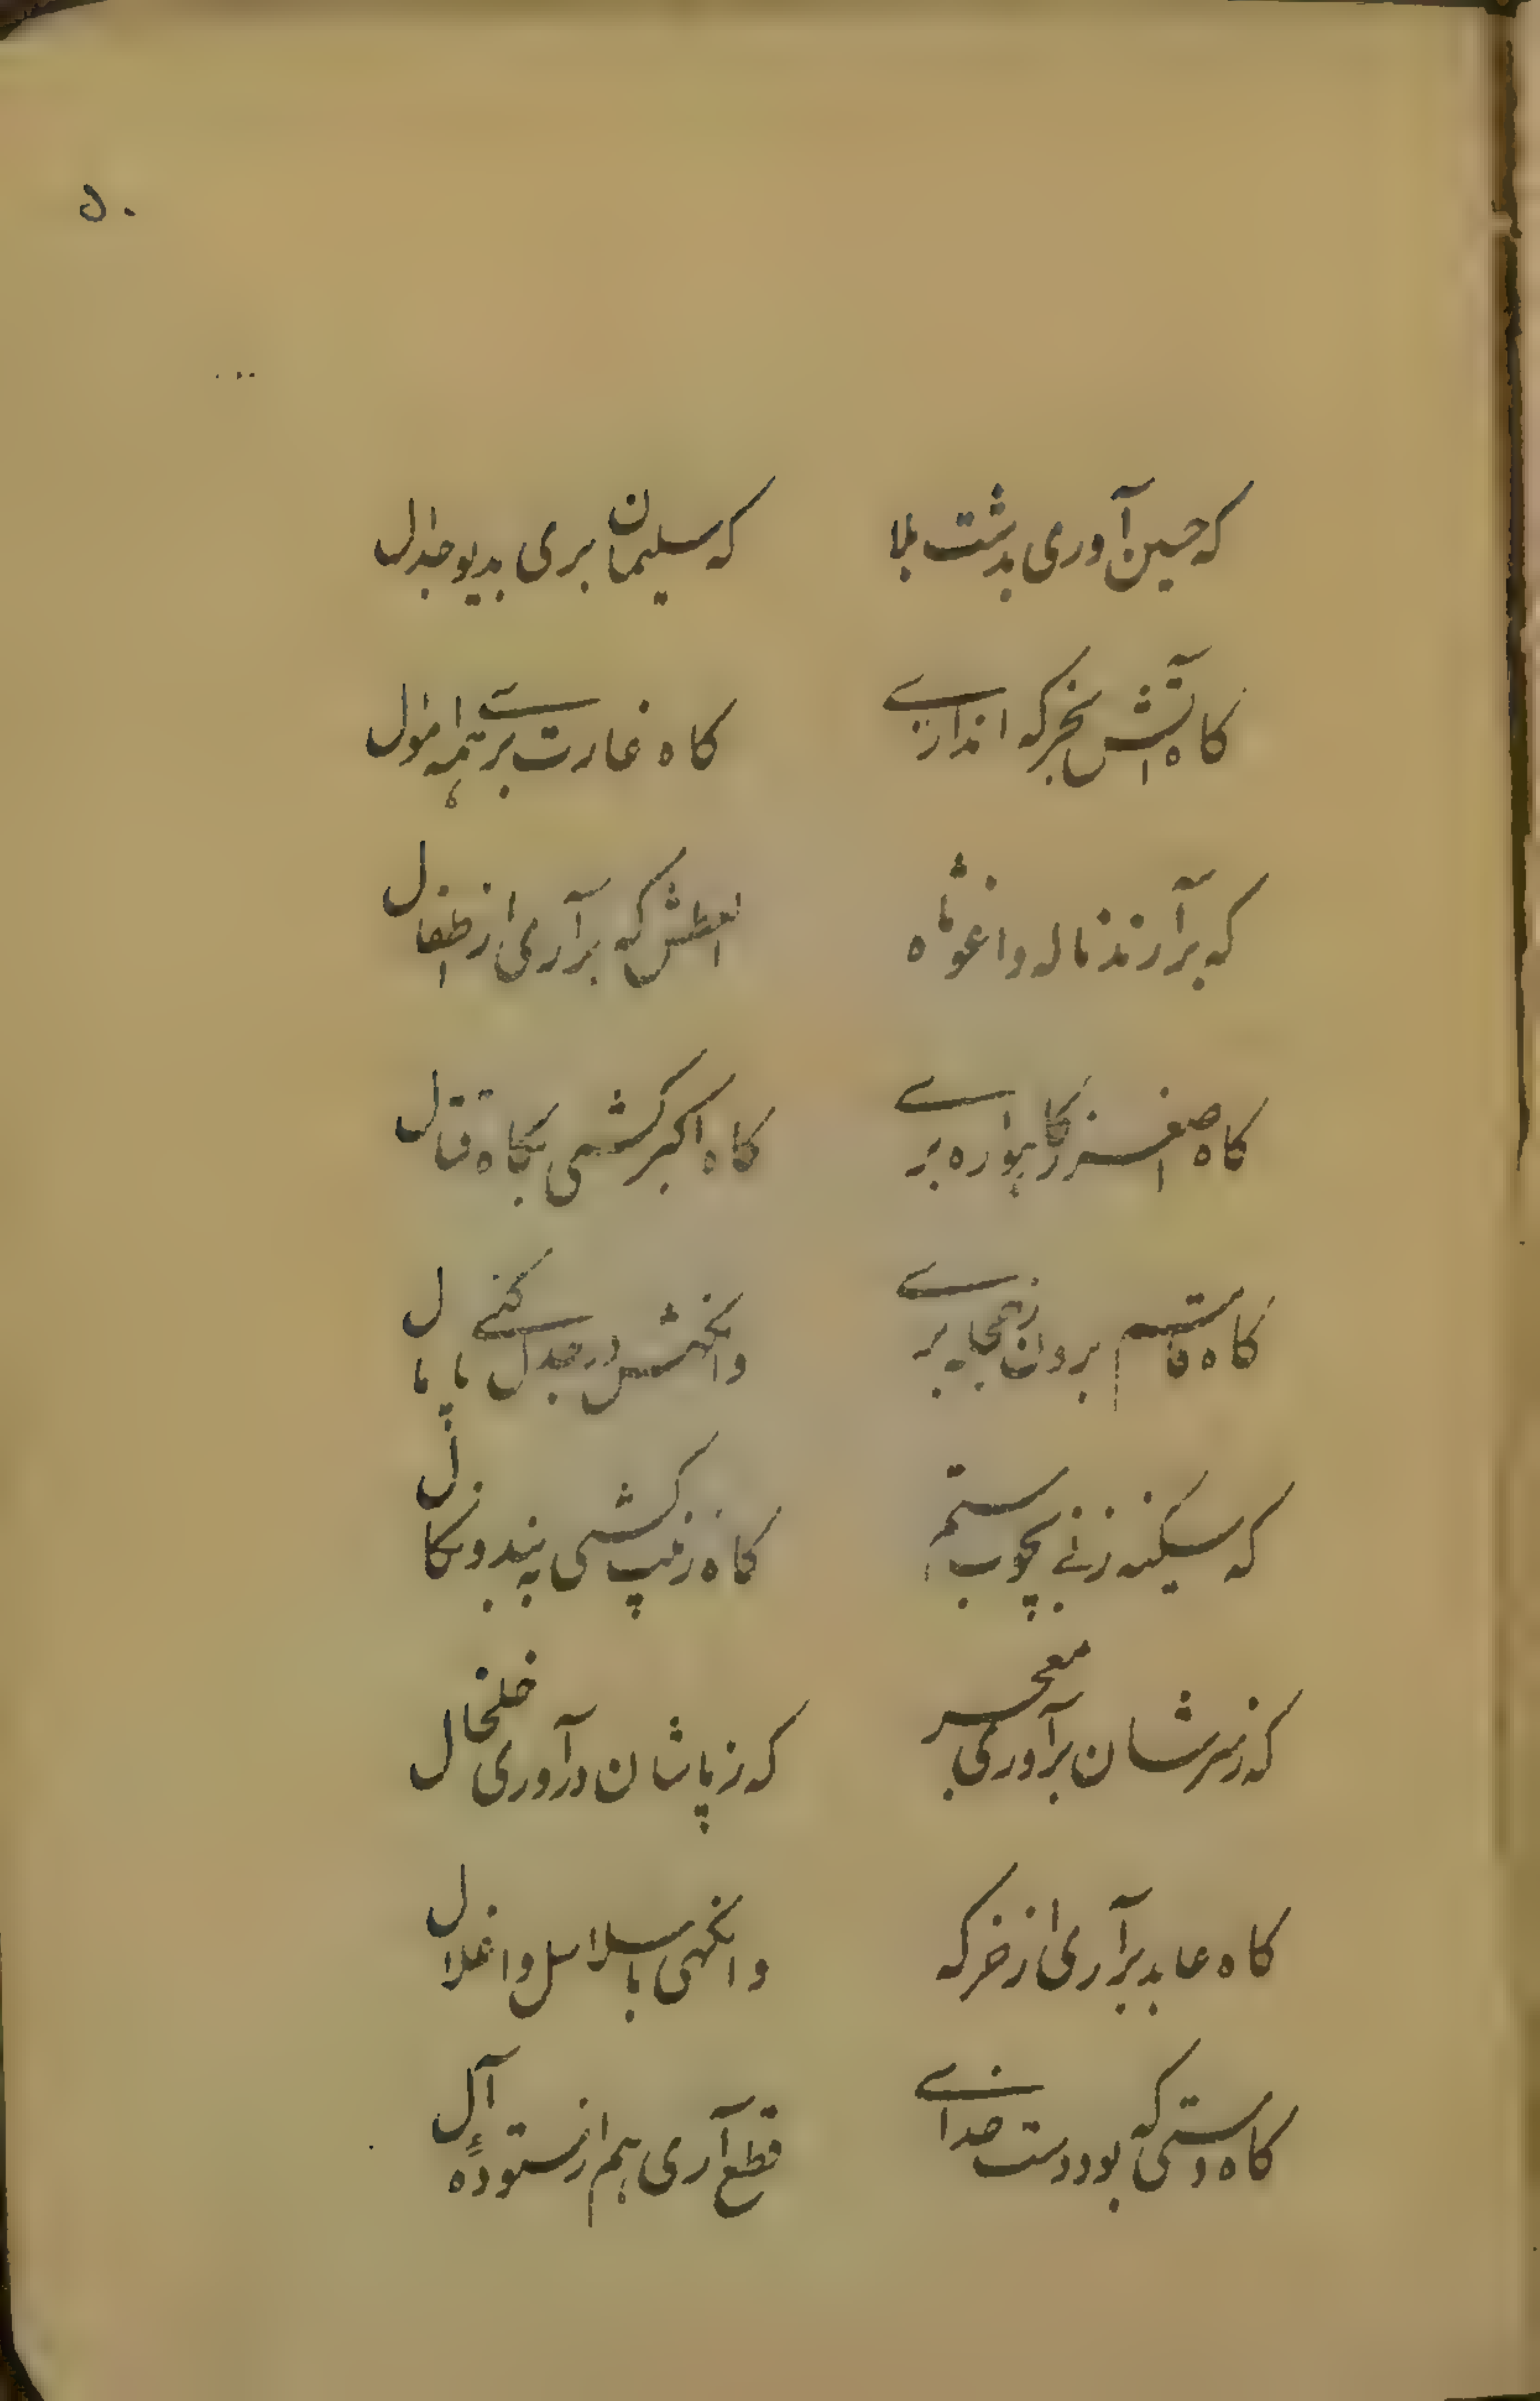 ۵۰
که حسین آوری بدشت بلا
که سلیمان بری بدیو جدال
کاه آتش بخرکه اندازی
کاه غارت بری همه اموال
که برآرند ناله واغوثاه
العطش که برآری از اطفال
کاه اصغر ز کاهواره بری
کاه اکبر کشی بکاه قتال
کاه قاسم برون ز حجله بری
وانکهش در جدل کنی پامال
که سکینه زنی بچوب ستم
کاه زینب کشی به بند و نکال
که ز سرشان برآوری معجر
که ز پاشان درآوری خلخال
کاه عابد برآری از خرکه
وانکهی با سلاسل و اغلال
کاه دستی که بود دست خدای
قطع آری هم از ستودهٔ آل